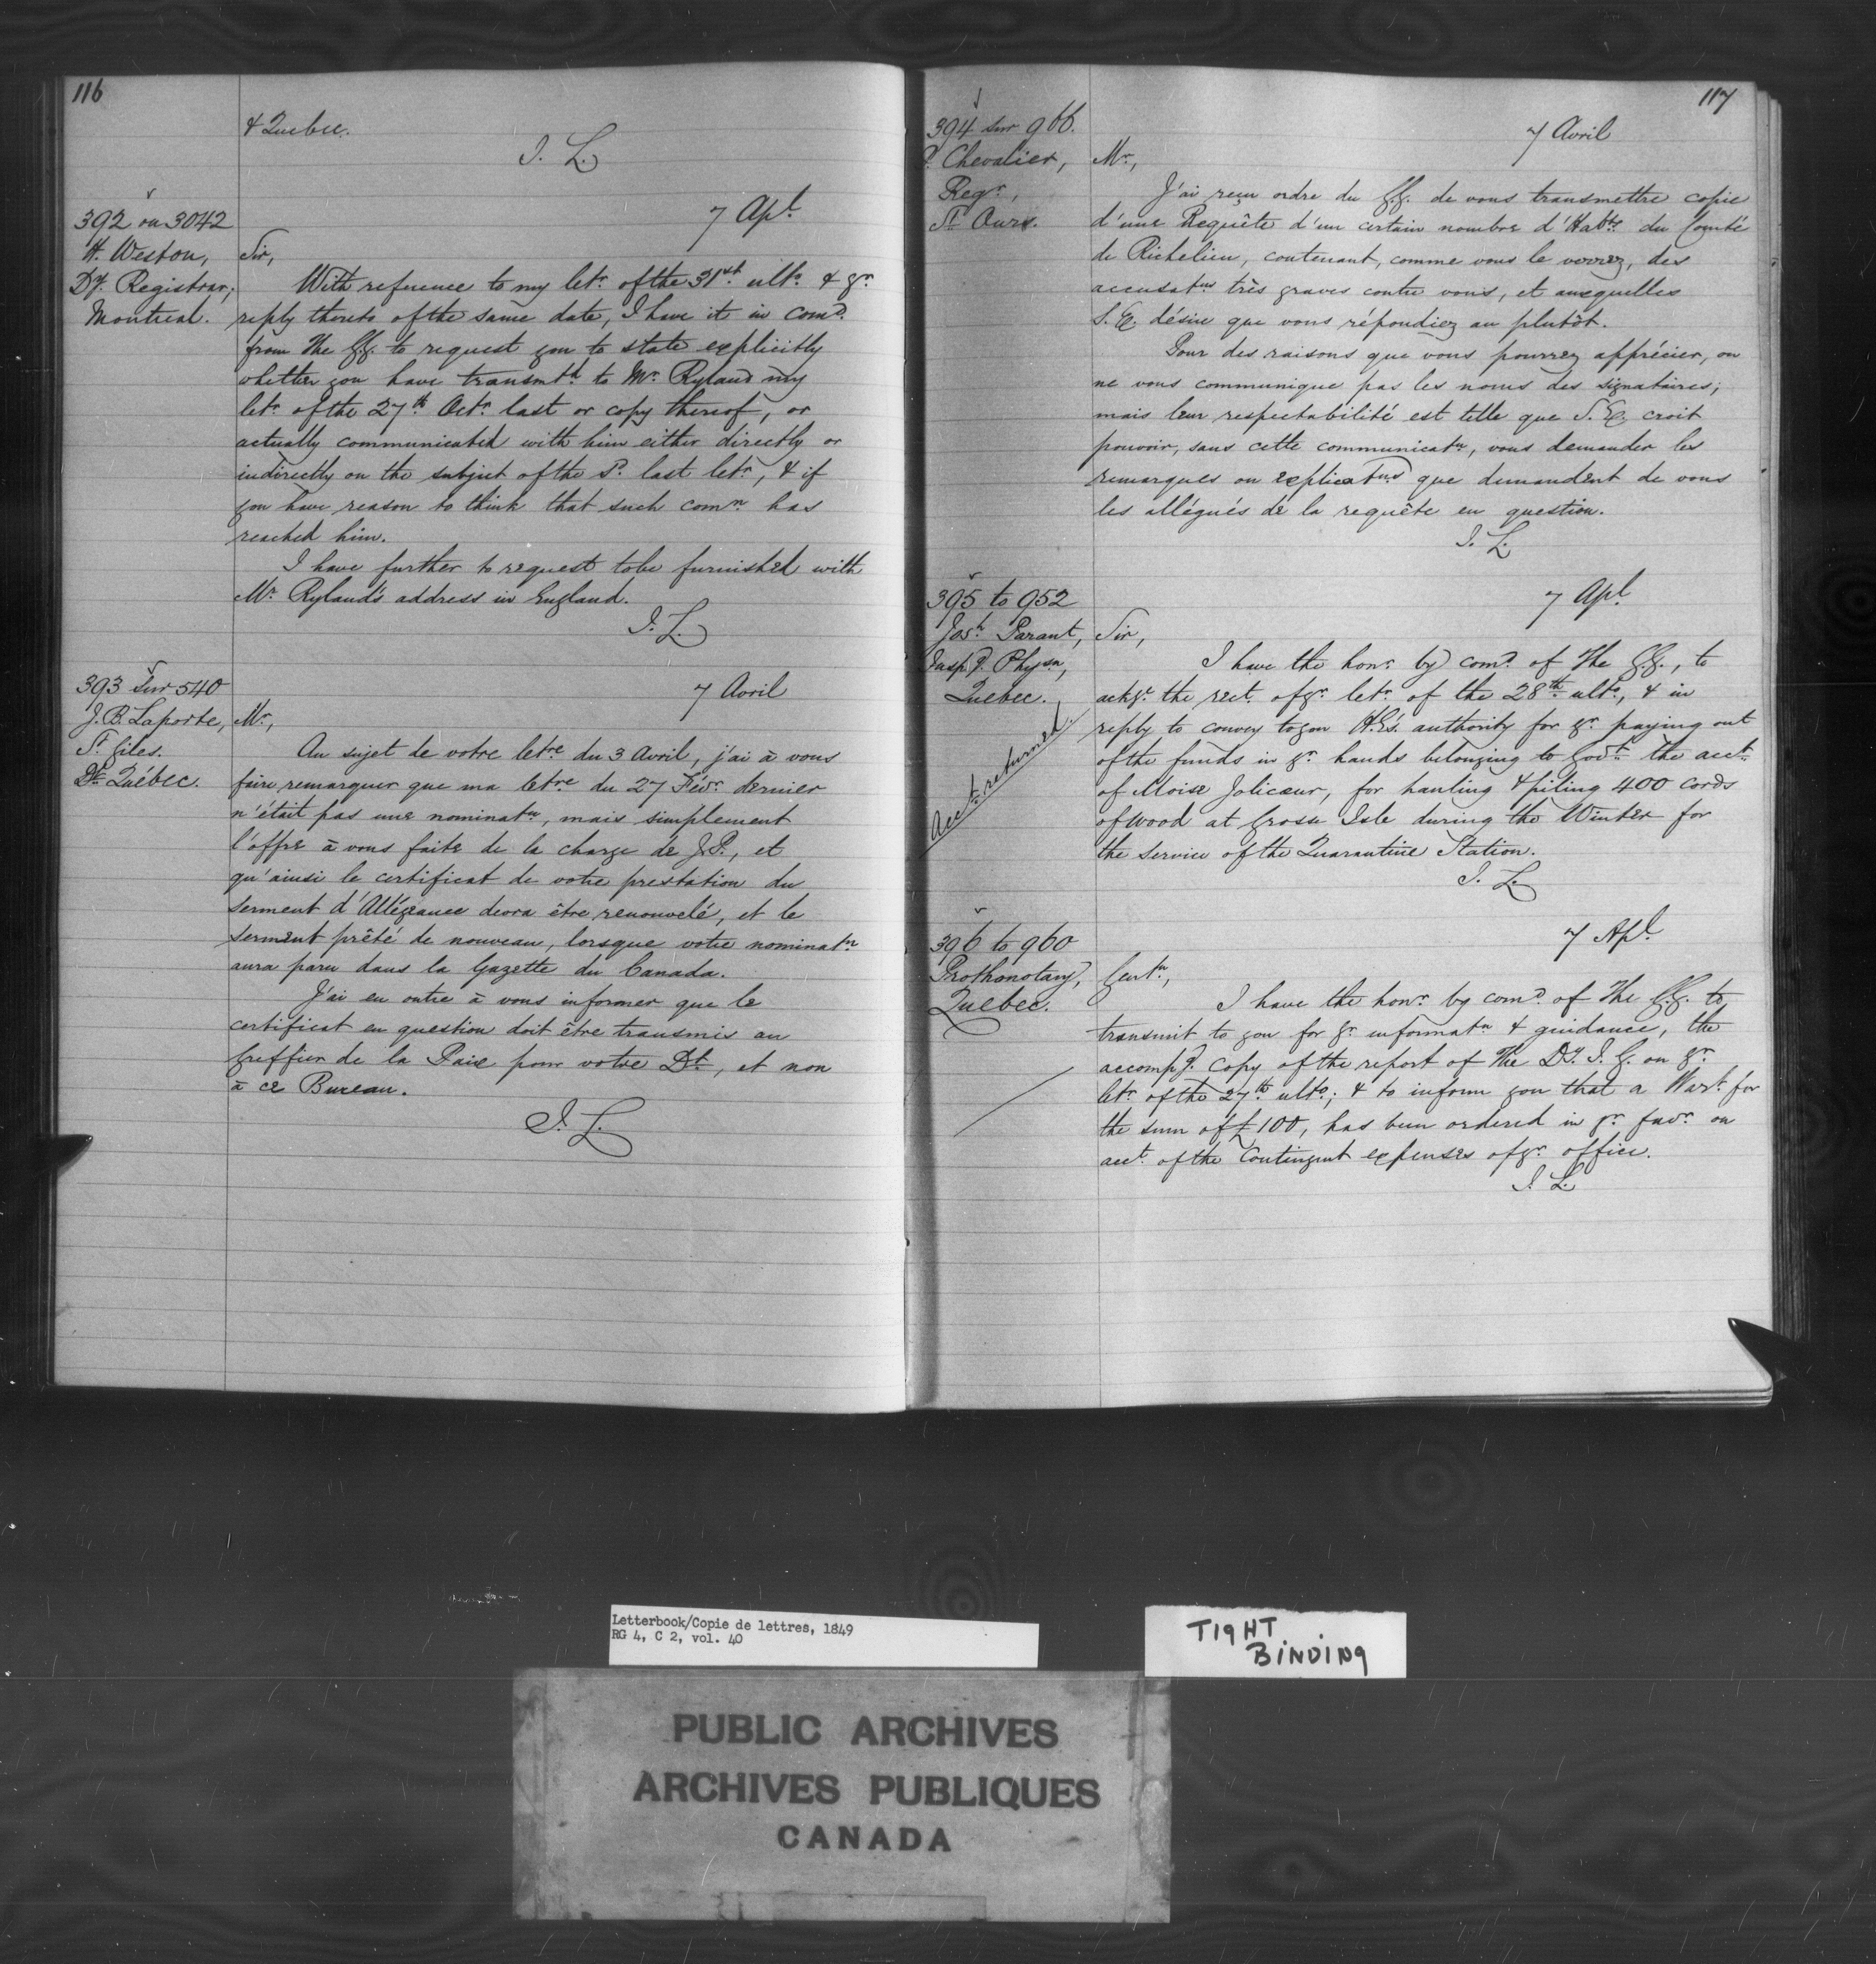 116
& Quebec.
J. L.
392 on 3042
H. Weston,
Dy. Registrar,
Montreal.
7 Apl.
Sir,
With reference to my letr. of the 31st ulto. & yr.
reply thereto of the same date, I have it in comd.
from The G.G. to request you to state explicitly
whether you have transmtd. to Mr. Ryland my
letr. of the 27th. Octr. last or copy thereof, or
actually communicated with him either directly or
indirectly on the subject of the sd. last letr., & if
you have reason to think that such comn. has
reached him.
I have further to request to be furnished with
Mr. Ryland's address in England.
J. L.
393 Sur 540
J. B. Laporte,
St. Giles.
Dt. Québec.
7 Avril
Mr.,
Au sujet de votre letre. du 3 Avril, j'ai à vous
faire remarquer que ma letre. du 27 Févr. dernier
n'était pas une nominatn., mais simplement
l'offre à vous faite de la charge de J.P., et
qu'ainsi le certificat de votre prestation du
serment d'Allégeance devra être renouvelé, et le
serment prêté de nouveau, lorsque votre nominatn.
aura paru dans la Gazette du Canada.
J'ai en outre à vous informer que le
certificat en question doit être transmis au
Greffier de la Paix pour votre Dt., et non
à ce Bureau.
J. L.
117
394 sur 966.
P. Chevalier,
Regr.,
St. Ours.
7 Avril
Mr.,
J'ai reçu ordre du G.G. de vous transmettre copie
d'une Requête d'un certain nombre d'Habts. du Comté
de Richelieu, contenant, comme vous le verrez, des
accusatns très graves contre vous, et auxquelles
S. E. désire que vous répondiez au plutôt.
Pour des raisons que vous pourrez apprécier, on
ne vous communique pas les noms des signataires;
mais leur respectabilité est telle que S. E. croit
pouvoir, sans cette communicatn., vous demander les
remarques ou explicatns que demandent de vous
les allégués de la requête en question.
J. L.
395 to 952
Josh. Parant,
Inspg. Physn.,
Quebec.
Acct. returned.
7 Apl.
Sir,
I have the honr. by comd. of The G.G., to
ackge. the rect. of yr. letr. of the 28th. ulto., & in
reply to convey to you H.E's. authority for yr. paying out
of the funds in yr. hands belonging to Govt. the acct.
of Moise Jolicœur, for hauling & piling 400 cords
of wood at Grosse Isle during the Winter for
the service of the Quarantine Station.
J. L.
396 to 960
Prothonotary,
Quebec.
7 Apl.
Gentn.,
I have the honr. by comd. of The G.G. to
transmit to you for yr. informatn. & guidance, the
accompg. copy of the report of The Dy. I. G. on yr.
letr. of the 27th. ulto.; & to inform you that a Wart. for
the sum of £100, has been ordered in yr. favr. on
acct. of the Contingent expenses of yr. office.
J. L.
Letterbook/Copie de lettres, 1849
RG 4, C 2, vol. 40
TIGHT
BINDING
PUBLIC ARCHIVES
ARCHIVES PUBLIQUES
CANADA